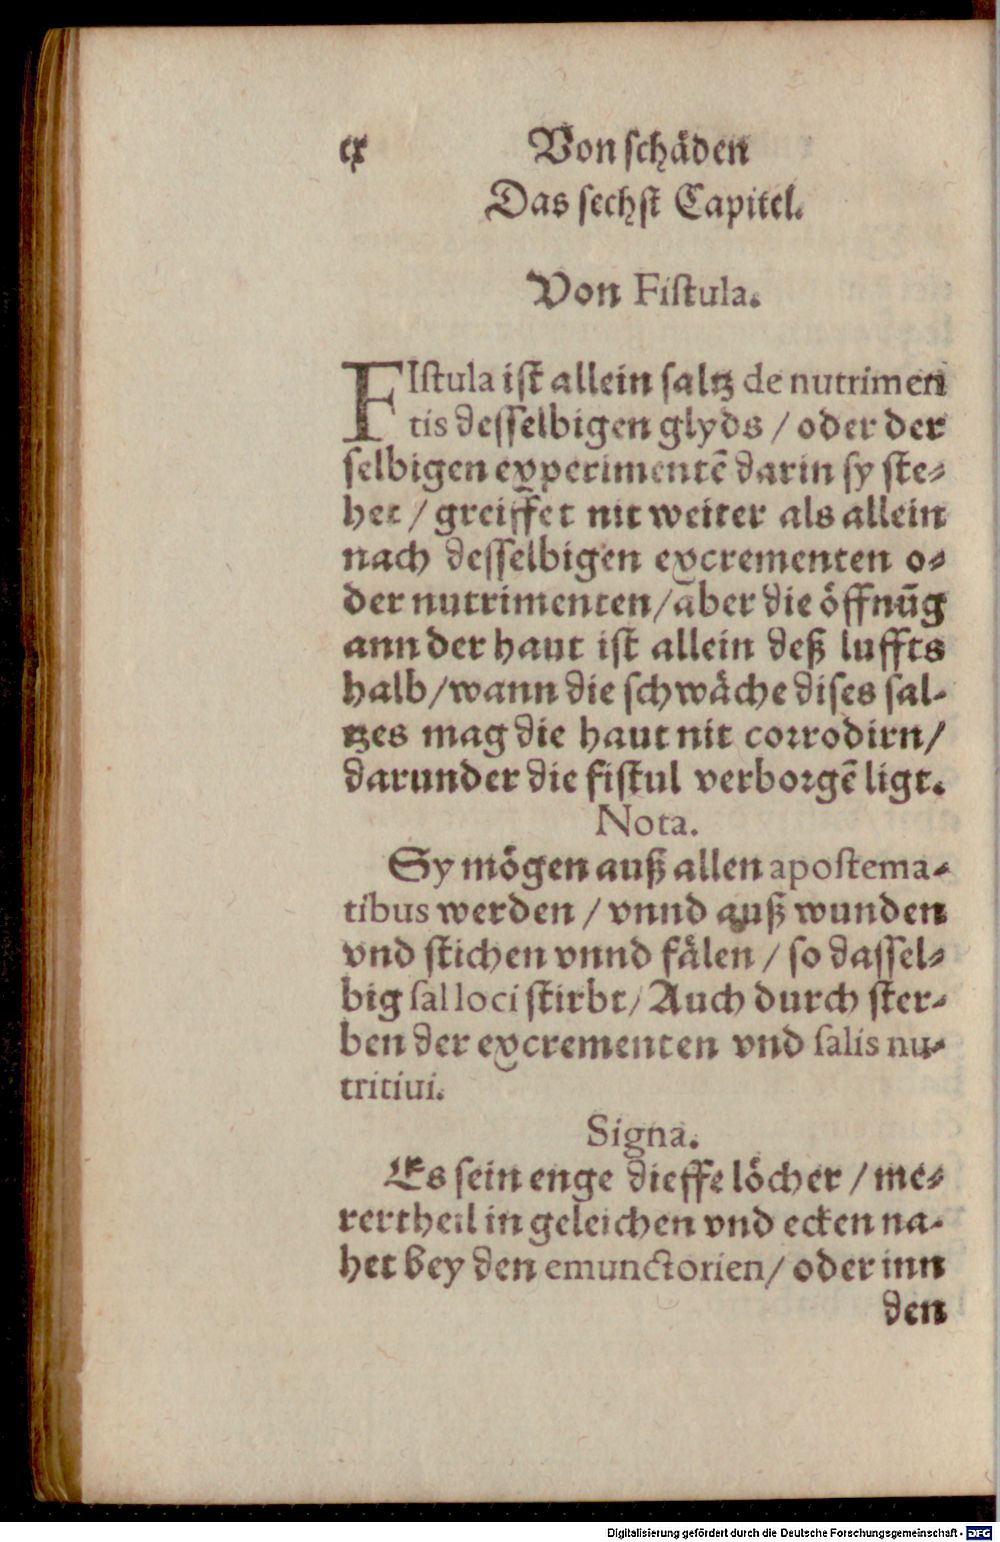 cx Von schäden
Das sechst Capitel.
Von Fistula.
FIstula ist allein saltz de nutrimen
tis desselbigen glyds / oder der
selbigen experimentē darin sy ste⸗
het / greiffet nit weiter als allein
nach desselbigen excrementen o⸗
der nutrimenten / aber die öffnūg
ann der haut ist allein deß luffts
halb / wann die schwäche dises sal-
tzes mag die haut nit corrodirn /
darunder die fistul verborgē ligt.
Nota.
Sy mögen auß allen apostema-
tibus werden / vnnd auß wunden
vnd stichen vnnd fälen / so dassel⸗
big sal loci stirbt / Auch durch ster⸗
ben der excrementen vnd salis nu⸗
tritiui.
Signa.
Es sein enge dieffe löcher / me⸗
rertheil in geleichen vnd ecken na-
het bey den emunctorien / oder inn
den
Digitalisierung gefördert durch die Deutsche Forschungsgemeinschaft - DFG